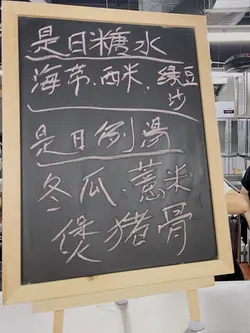 是日糖水
海带、西米、绿豆
沙
是日例汤
冬瓜、薏米
煲猪骨